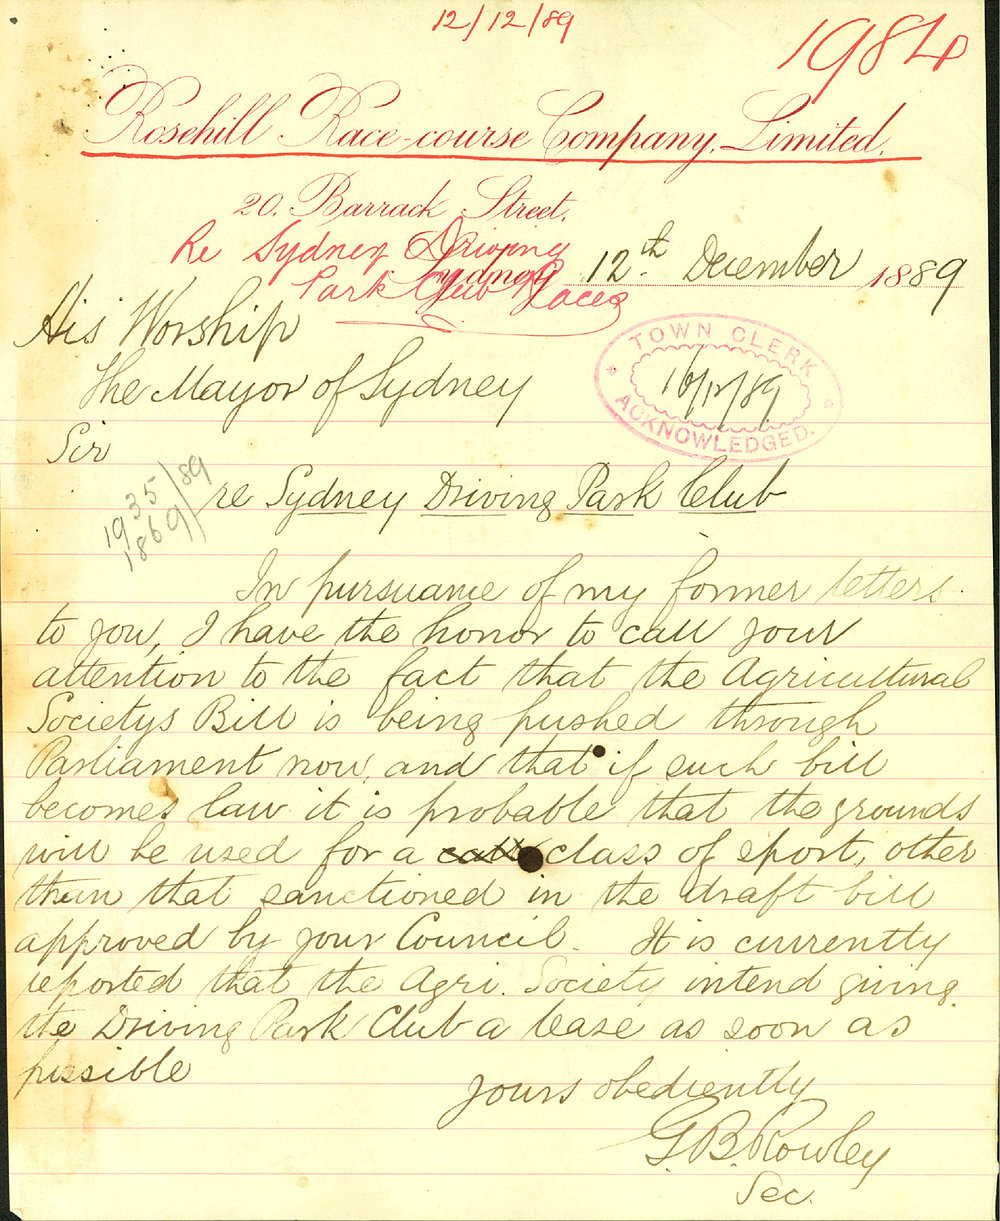 12/12/89
1984
Rosehill Race-course Company, Limited.
20. Barrack Street.
Re Sydney Driving
Park Club Races
Sydney 12th December 1889
His Worship
The Mayor of Sydney
TOWN CLERK
16/12/89
ACKNOWLEDGED.
Sir
1935
1869/89
re Sydney Driving Park Club
In pursuance of my former letters
to you, I have the honor to call your
attention to the fact that the Agricultural
Societys Bill is being pushed through
Parliament now, and that if such bill
becomes law it is probable that the grounds
will be used for a class of sport, other
than that sanctioned in the draft bill
approved by your Council. It is currently
reported that the Agri. Society intend giving
the Driving Park Club a lease as soon as
possible
Yours obediently
G. B. Rowley
Sec.